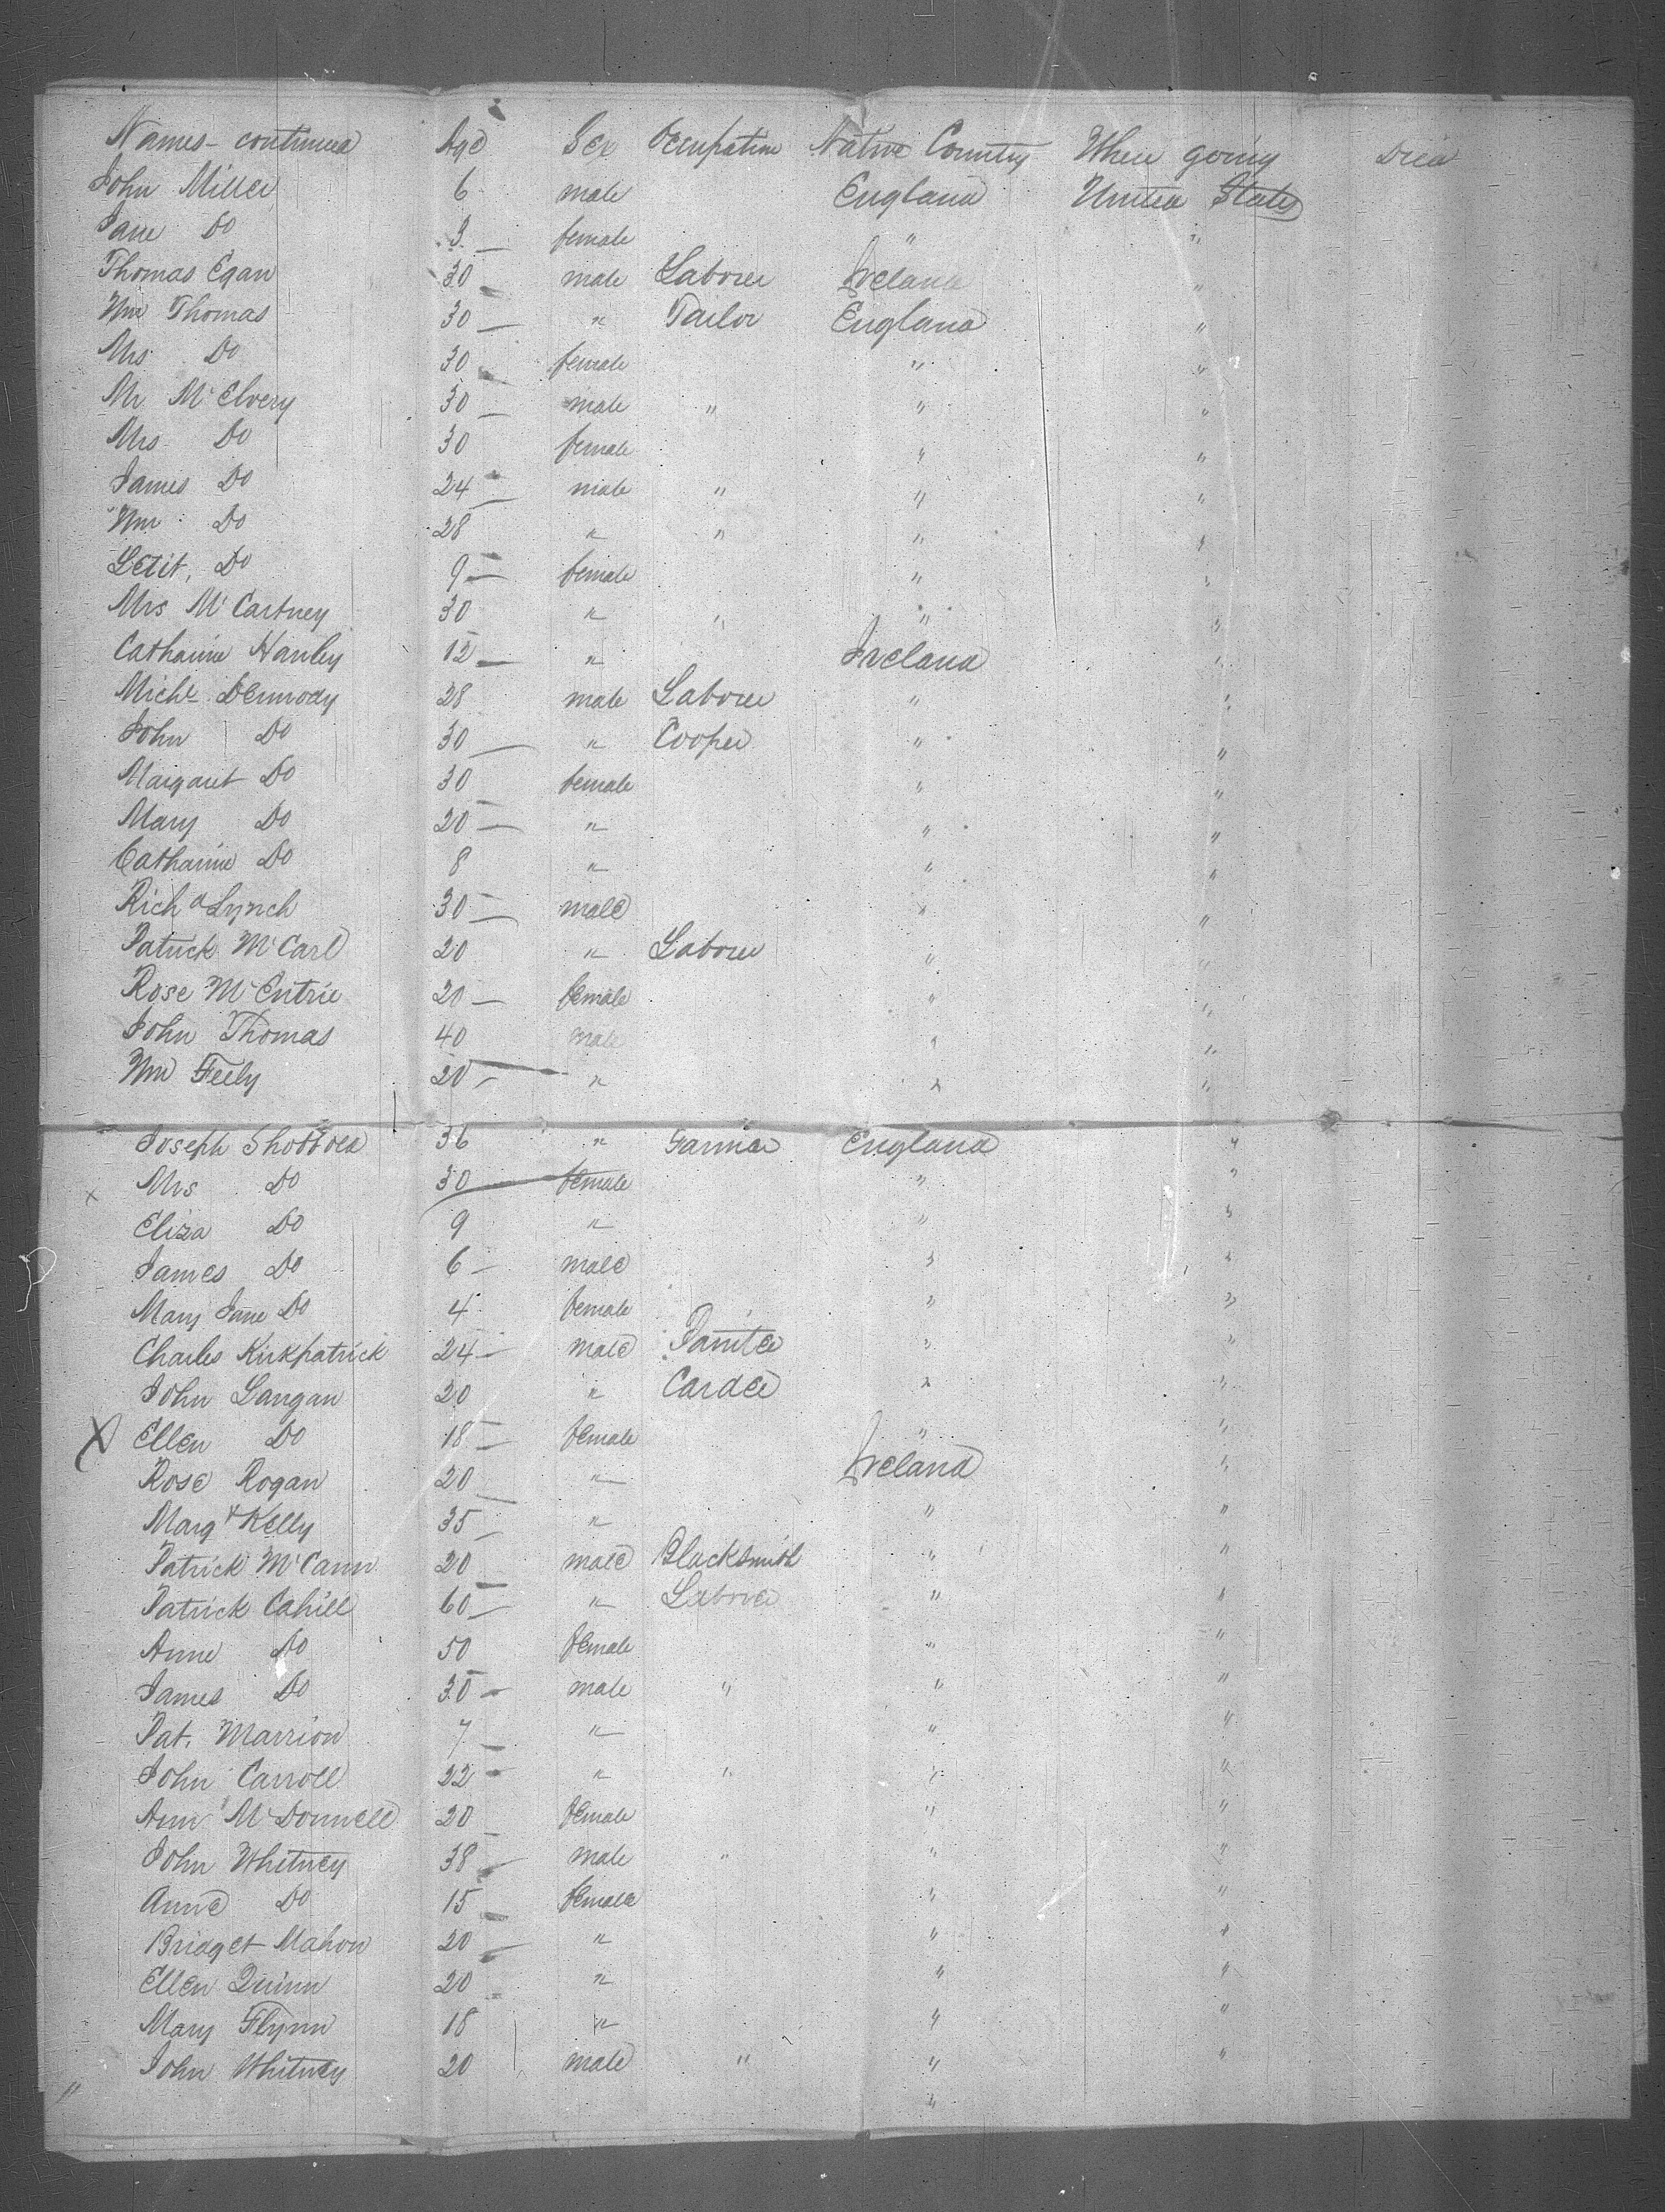 Names - continued Age Sex Occupation Native Country Where going Died
John Miller 6 male England United States
Jane Do 3 female " "
Thomas Egan 30 male Laborer Ireland "
Wm Thomas 30 " Tailor England "
Mrs Do 30 female " "
Mr McElvery 30 male " " "
Mrs Do 30 female " "
James Do 24 male " " "
Wm Do 28 " " " "
Letit. Do 9 female " "
Mrs McCartney 30 " " " "
Catharine Hanley 12 " Ireland "
Michl Dermody 28 male Laborer " "
John Do 30 " Cooper " "
Margaret Do 30 female " "
Mary Do 20 " " "
Catharine Do 8 " " "
Richd Lynch 30 male " "
Patrick McCarl 20 " Laborer " "
Rose McEntrie 20 female " "
John Thomas 40 male " "
Wm Feely 20 " " "
Joseph 36 " Farmer England "
Mrs Do 30 female " "
Eliza Do 9 " " "
James Do 6 male " "
Mary Jane Do 4 female " "
Charles Kirkpatrick 24 male Painter " "
John Langan 20 " Carder " "
X Ellen Do 18 female " "
Rose Rogan 20 " Ireland "
Margt Kelly 35 " " "
Patrick McCann 20 male Blacksmith " "
Patrick Cahill 60 " Laborer " "
Anne Do 50 female " "
James Do 30 male " " "
Pat. Marrion 7 " " "
John Carroll 22 " " " "
Ann McDonnell 20 female " "
John Whitney 38 male " " "
Anne Do 15 female " "
Bridget Mahon 20 " " "
Ellen Quinn 20 " " "
Mary Flynn 18 " " "
John Whitney 20 male " " "
" "